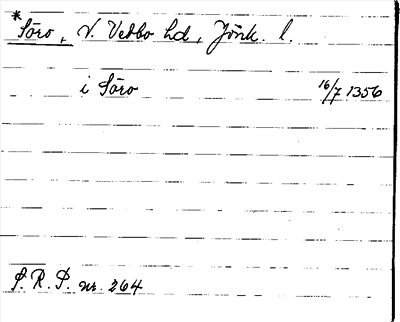 *Söro, V. Vedbo hd, Jönk. l.
i Söro 16/7 1356
S. R. P. nr. 264